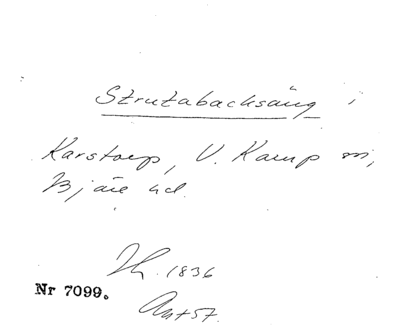 Strutabacksäng i
Karstorp, V. Karup sn,
Bjäre hd.
Th. 1836
Nr 7099.
Ant 57.